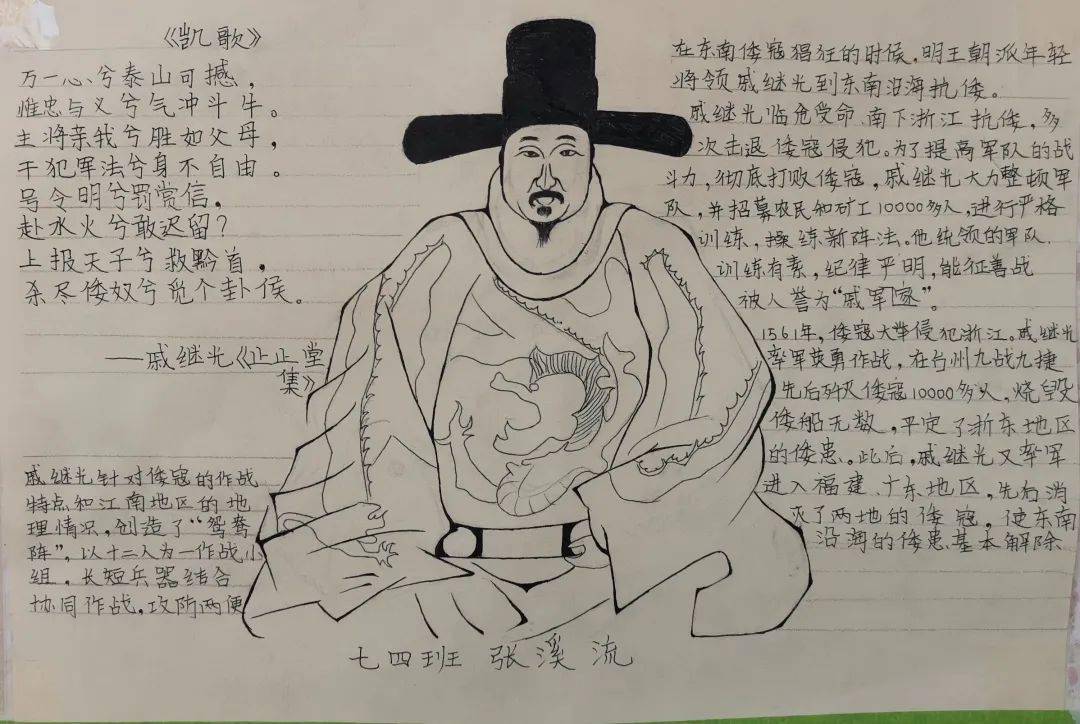 《凯歌》
万一心兮泰山可撼，
惟忠与义兮气冲斗牛。
主将亲我兮胜如父母，
干犯军法兮身不自由。
号令明兮罚赏信，
赴水火兮敢迟留？
上报天子兮救黔首，
杀尽倭奴兮觅个卦侯。
——戚继光《止止堂
集》
戚继光针对倭寇的作战
特点和江南地区的地
理情况，创造了“鸳鸯
阵”，以十二人为一作战小
组，长短兵器结合
协同作战，攻防两便
在东南倭寇猖狂的时候，明王朝派年轻
将领戚继光到东南沿海抗倭。
戚继光临危受命，南下浙江抗倭，多
次击退倭寇侵犯。为了提高军队的战
斗力，彻底打败倭寇，戚继光大力整顿军
队，并招募农民和矿工10000多人，进行严格
训练，操练新阵法。他统领的军队
训练有素，纪律严明，能征善战
被人誉为“戚军家”。
1561年，倭寇大举侵犯浙江。戚继光
率军英勇作战，在台州九战九捷
先后歼灭倭寇10000多人，烧毁
倭船无数，平定了浙东地区
的倭患。此后，戚继光又率军
进入福建、广东地区，先后消
灭了两地的倭寇，使东南
沿海的倭患基本解除
七四班 张溪流